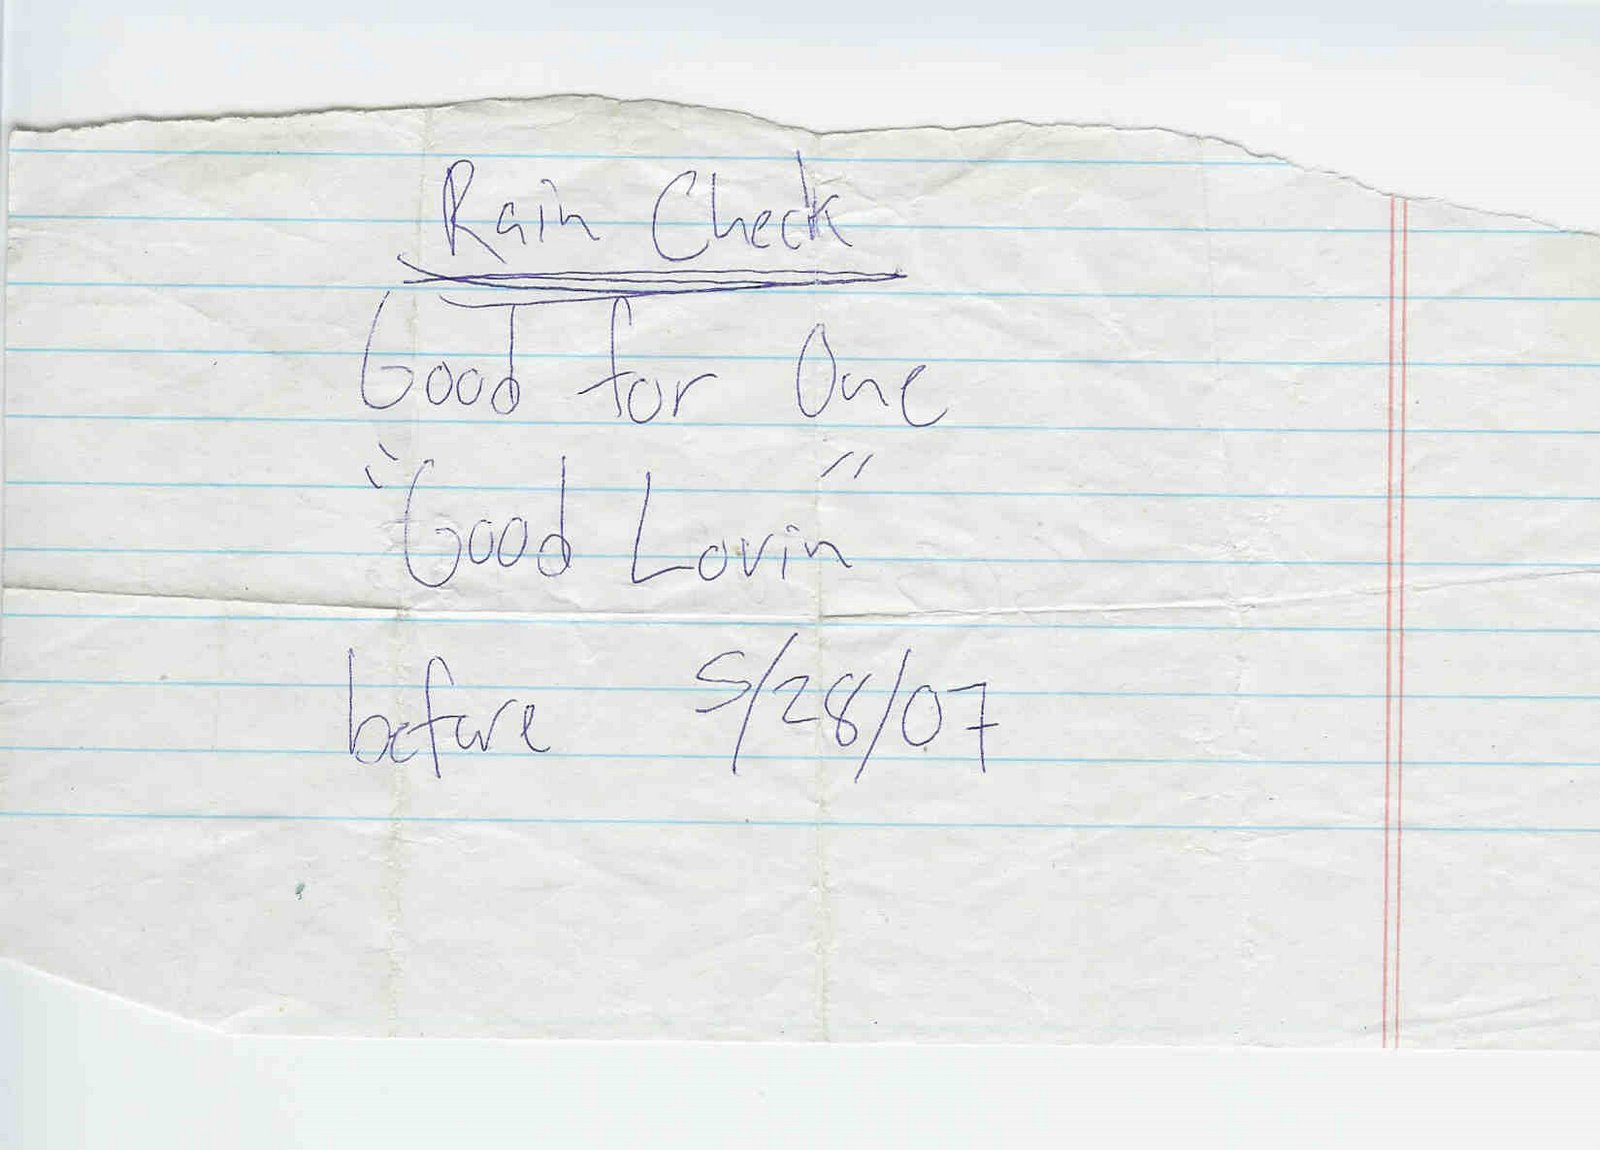 Rain Check
Good for One
"Good Lovin"
before 5/28/07